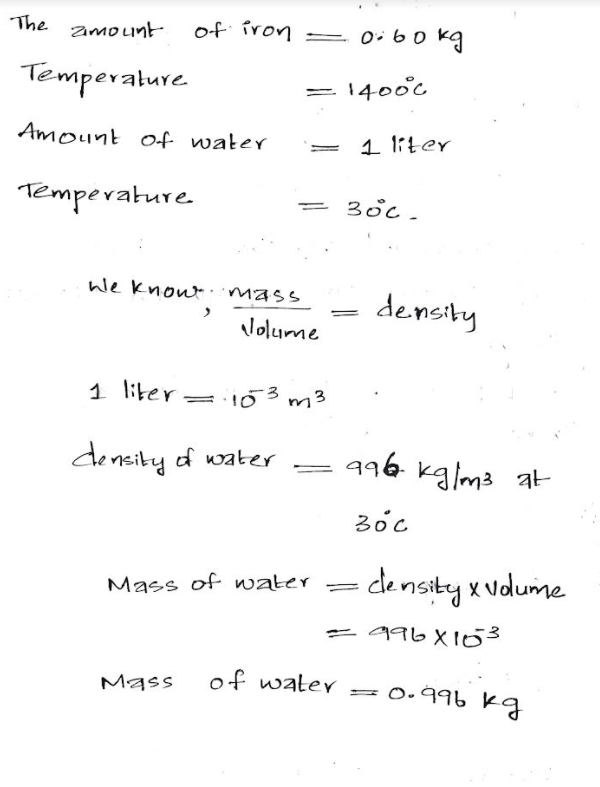 The amount of iron = 0.60 kg
Temperature = 1400°c
Amount of water = 1 liter
Temperature = 30°c.
We know, mass / Volume = density
1 liter = 10⁻³ m³
density of water = 996 kg/m3 at
30°c
Mass of water = density x volume
= 996 X 10⁻³
Mass of water = 0.996 kg